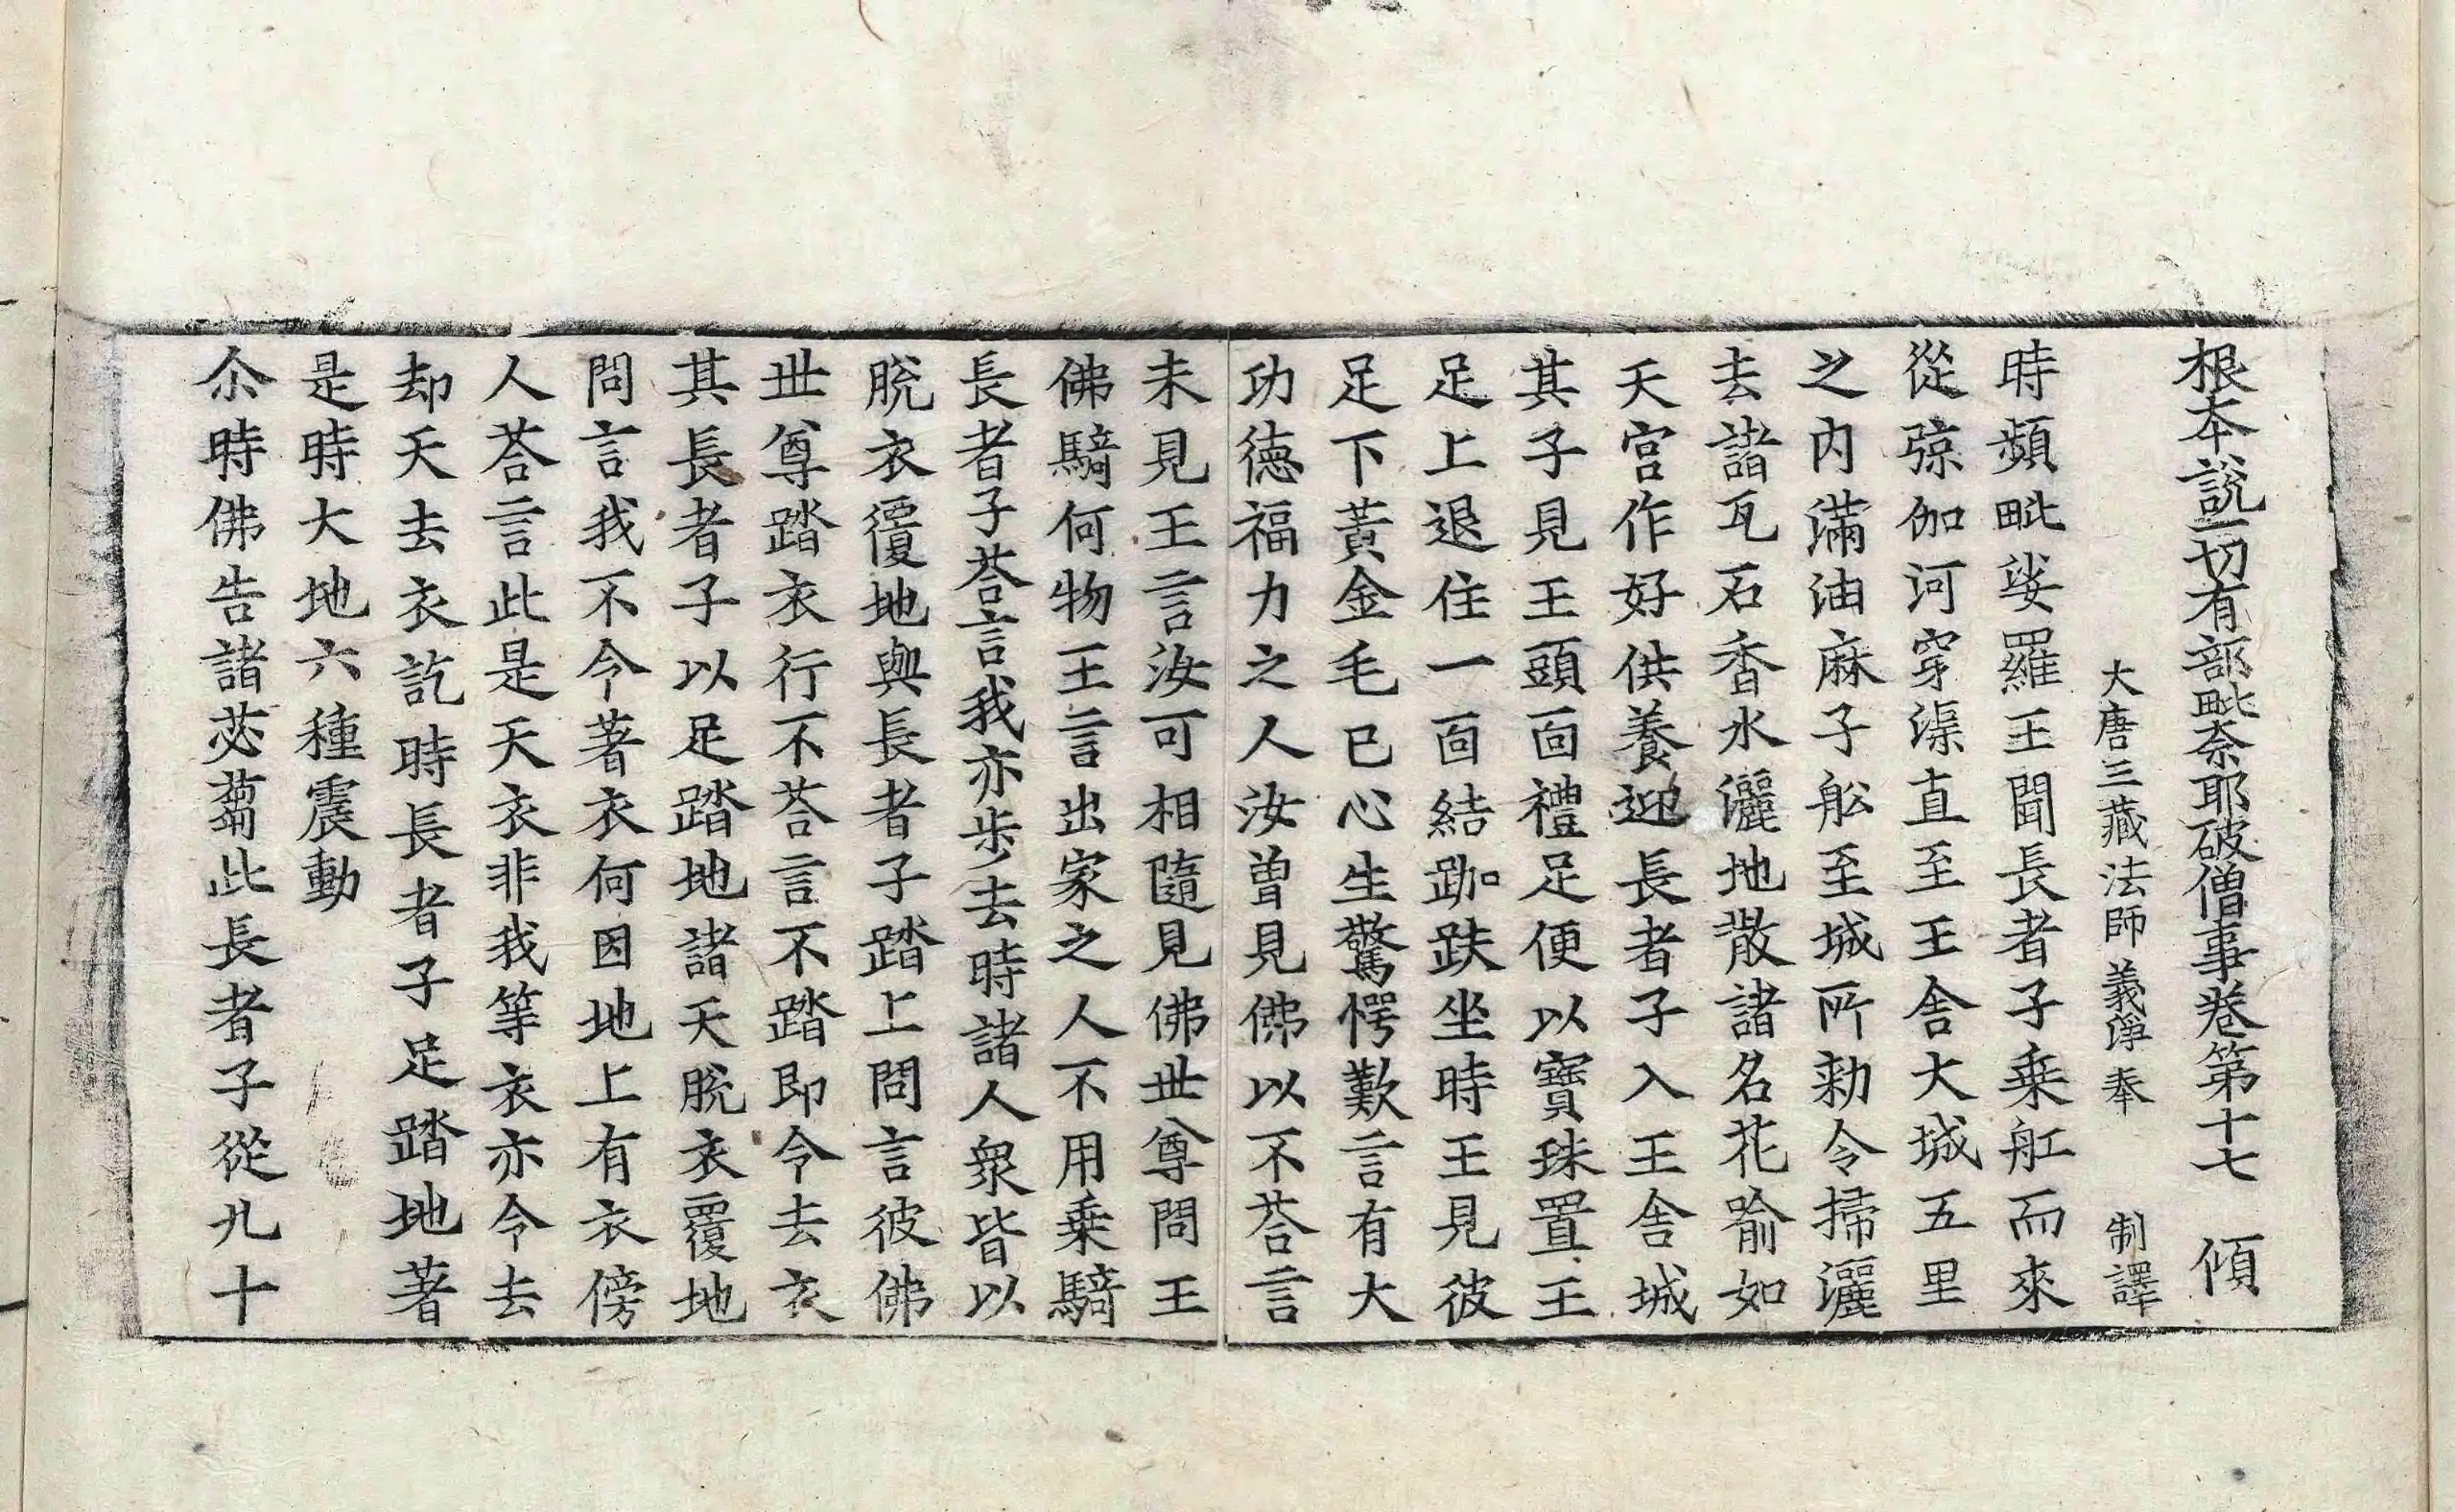 根本說一切有部毗奈耶破僧事卷第十七 傾
大唐三藏法師義淨奉 制譯
時頻毗娑羅王聞長者子乗舡而來
從弶伽河穿渠直至王舍大城五里
之內滿油麻子舩至城所勑令掃灑
去諸瓦石香水灑地散諸名花喻如
天宮作好供養迎長者子入王舍城
其子見王頭面禮足便以寶珠置王
足上退住一面結跏趺坐時王見彼
足下黃金毛已心生驚愕歎言有大
功德福力之人汝曾見佛以不荅言
未見王言汝可相隨見佛世尊問王
佛騎何物王言出家之人不用乗騎
長者子荅言我亦步去時諸人衆皆以
脫衣覆地與長者子踏上問言彼佛
世尊踏衣行不荅言不踏即令去衣
其長者子以足踏地諸天脫衣覆地
問言我不令著衣何因地上有衣傍
人荅言此是天衣非我等衣亦令去
却天去衣訖時長者子足踏地著
是時大地六種震動
尒時佛告諸苾蒭此長者子從九十